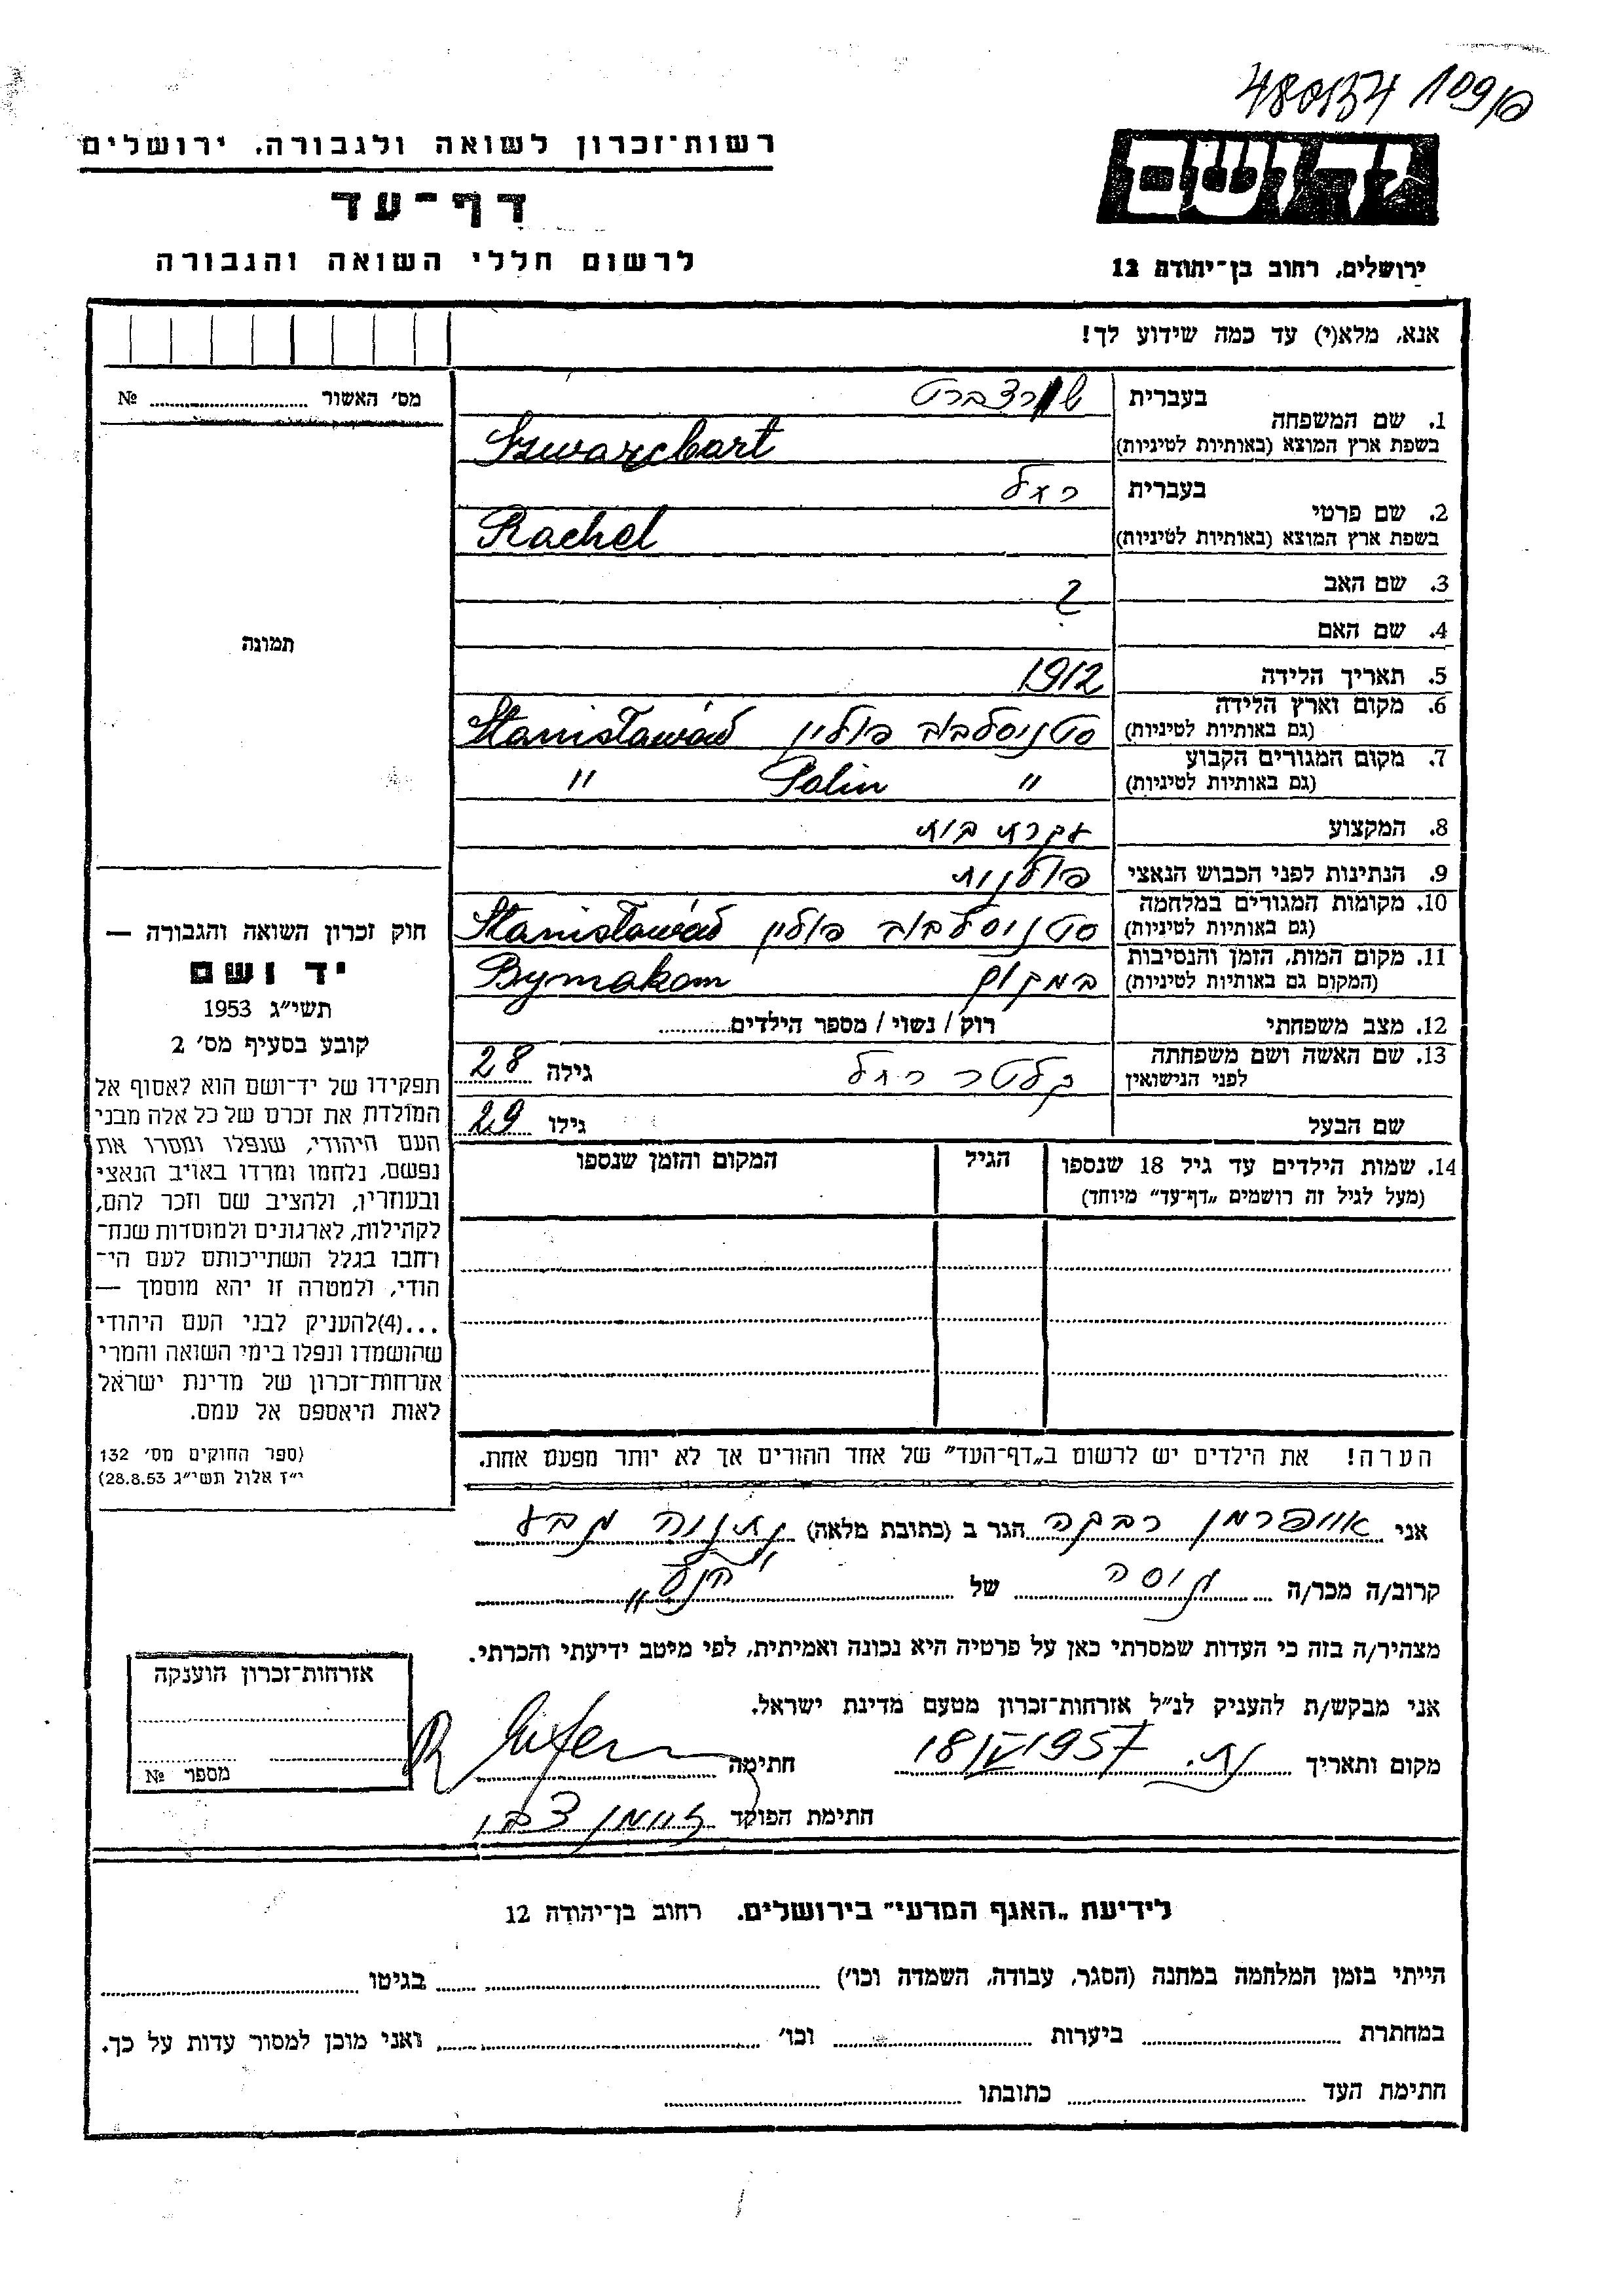 480134 109/פ
רשות־זכרון לשואה ולגבורה, ירושלים
דף־עד
לרשום חללי השואה והגבורה
יד ושם
ירושלים, רחוב בן־יהודה 12
אנא, מלא(י) עד כמה שידוע לך!
מס' האשור ........ №
תמונה
1. שם המשפחה
בעברית שורצברט
בשפת ארץ המוצא (באותיות לטיניות) Szwarcbart
2. שם פרטי
בעברית רחל
בשפת ארץ המוצא (באותיות לטיניות) Rachel
3. שם האב ?
4. שם האם
5. תאריך הלידה 1912
6. מקום וארץ הלידה
(גם באותיות לטיניות) סטניסלבוב פולין Stanisławów
7. מקום המגורים הקבוע
(גם באותיות לטיניות) " Polin "
8. המקצוע עקרת בית
9. הנתינות לפני הכבוש הנאצי פולנית
10. מקומות המגורים במלחמה
(גם באותיות לטיניות) סטניסלבוב פולין Stanisławów
11. מקום המות, הזמן והנסיבות
(המקום גם באותיות לטיניות) במקום Bymakom
12. מצב משפחתי רוק / נשוי / מספר הילדים........
13. שם האשה ושם משפחתה
לפני הנישואין רחל גילה 28
שם הבעל גילו 29
14. שמות הילדים עד גיל 18 שנספו
(מעל לגיל זה רושמים „דף־עד" מיוחד)
הגיל
המקום והזמן שנספו
חוק זכרון השואה והגבורה —
יד ושם
תשי"ג 1953
קובע בסעיף מס' 2
תפקידו של יד־ושם הוא לאסוף אל
המולדת את זכרם של כל אלה מבני
העם היהודי, שנפלו ומסרו את
נפשם, נלחמו ומרדו באויב הנאצי
ובעוזריו, ולהציב שם וזכר להם,
לקהילות, לארגונים ולמוסדות שנח־
רחבו בגלל השתייכותם לעם הי־
הודי, ולמטרה זו יהא מוסמך —
...(4)להעניק לבני העם היהודי
שהושמדו ונפלו בימי השואה והמרי
אזרחות־זכרון של מדינת ישראל
לאות היאספם אל עמם.
(ספר החוקים מס' 132
י"ז אלול תשי"ג 28.8.53)
הערה! את הילדים יש לרשום ב„דף־העד" של אחד ההורים אך לא יותר מפעם אחת.
אני רבקה הגר ב (כתובת מלאה) נתניה
קרוב/ה מכר/ה גיסה של
מצהיר/ה בזה כי העדות שמסרתי כאן על פרטיה היא נכונה ואמיתית, לפי מיטב ידיעתי והכרתי.
אני מבקש/ת להעניק לנ"ל אזרחות־זכרון מטעם מדינת ישראל.
מקום ותאריך נת. 18/IV 1957 חתימה
חתימת הפוקד
אזרחות־זכרון הוענקה
מספר №
לידיעת „האגף המדעי" בירושלים, רחוב בן־יהודה 12
הייתי בזמן המלחמה במחנה (הסגר, עבודה, השמדה וכו') ........ בגיטו ........
במחתרת ........ ביערות ........ וכו' ........ ואני מוכן למסור עדות על כך.
חתימת העד ........ כתובתו ........